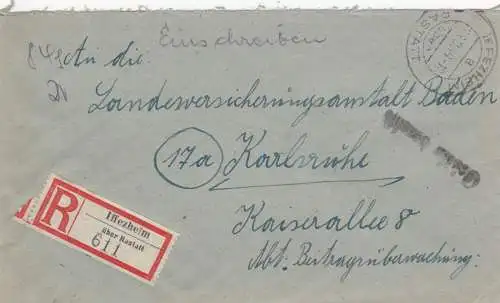 Einschreiben
An die
Landesversicherungsanstalt Baden
17a Karlsruhe
Kaiserallee 8
Abt. Beitragsüberwachung.
R
Iffezheim
über Rastatt
611
IFFEZHEIM
RASTATT